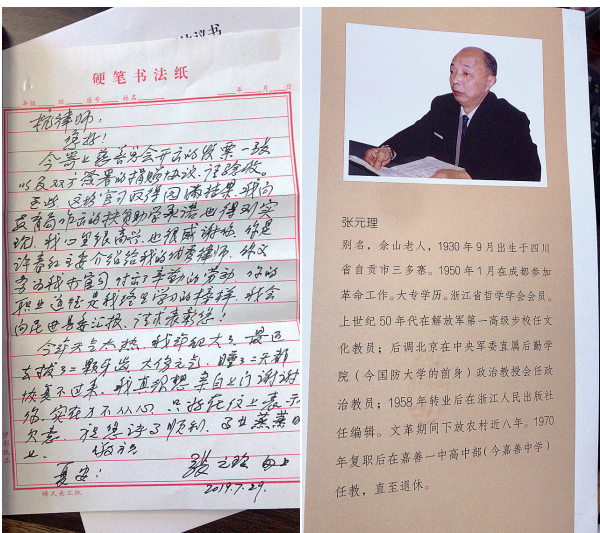 协议书
硬笔书法纸
年级 班 座号 姓名 年 月 日
律师:
您好!
今寄上慈善总会开出的发票一张
以及双方签署的捐赠协议,请验收。
至此,这场官司取得圆满结果,我向
教育局作出的扶贫助学承诺也得到实
现,我心里很高兴,也很感谢您。你是
许春红主委介绍给我的优秀律师,你
为我打官司,付出了辛勤的劳动,你的
职业道德是我终生学习的榜样,我会
向民进县委汇报,请求表彰您!
今年天气太热,我年纪大了,最近
去拔了二颗牙齿,大伤元气,睡了三天都
恢复不过来,我真很想亲自上门谢谢
您,实在力不从心,只好在信上表示
欠意。祝您顺利,事业蒸蒸日
上。
夏安! 张元理
2019.7.29.
横式美工纸
张元理
别名,佘山老人,1930年9月出生于四川
省自贡市三多寨。1950年1月在成都参加
革命工作。大专学历。浙江省哲学学会会员。
上世纪50年代在解放军第一高级步校任文
化教员;后调北京在中央军委直属后勤学
院(今国防大学的前身)政治教授会任政
治教员;1958年转业后在浙江人民出版社
任编辑。文革期间下放农村近八年。1970
年复职后在嘉善一中高中部(今嘉善中学)
任教,直至退休。